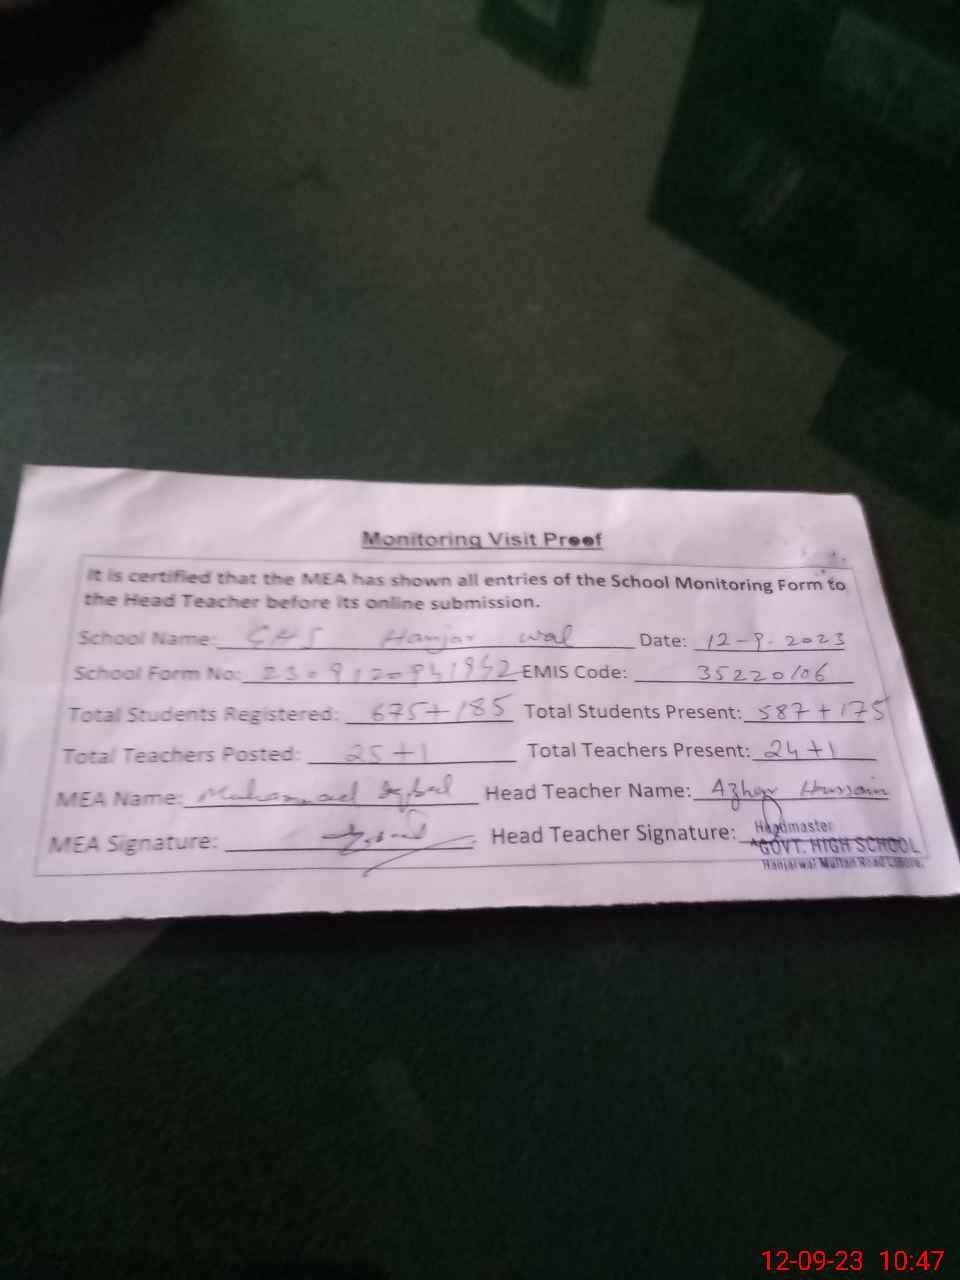 Monitoring Visit Proof
It is certified that the MEA has shown all entries of the School Monitoring Form to
the Head Teacher before its online submission.
School Name: GHS Hanjar wal Date: 12-9-2023
School Form No: EMIS Code: 35220106
Total Students Registered: 675+185 Total Students Present: 587+175
Total Teachers Posted: 25+1 Total Teachers Present: 24+1
MEA Name: Muhammad Iqbal Head Teacher Name: Azhar Hussain
MEA Signature: Head Teacher Signature:
Headmaster
GOVT. HIGH SCHOOL
Hanjarwal Multan Road Lahore.
12-09-23 10:47